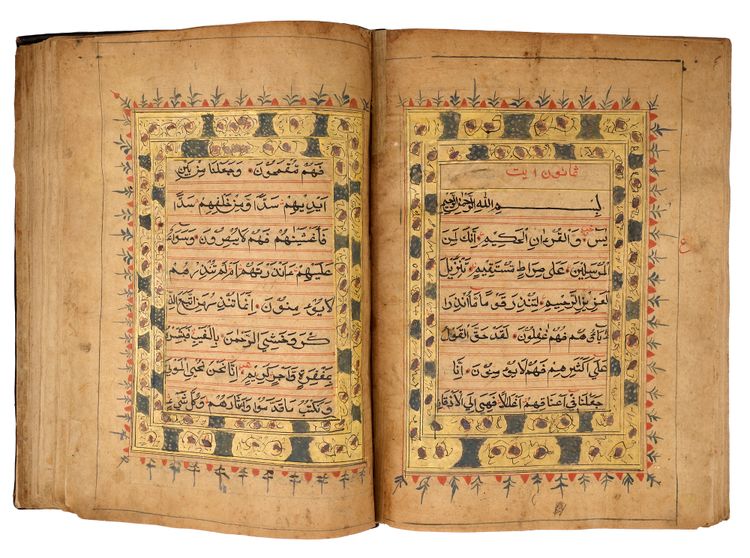 ثمانون ايت
بسم الله الرحمن الرحيم
يس والقرءان الحكيم انك لمن
المرسلين على صراط مستقيم تنزيل
العزيز الرحيم لتنذر قوما ما انذر ا
باؤهم فهم غفلون لقد حق القول
على اكثرهم فهم لا يؤمنون انا
جعلنا في اعناقهم اغللا فهي الى الاذقان
ع
فهم مقمحون وجعلنا من بين
ايديهم سدا ومن خلفهم سدا
فاغشينهم فهم لا يبصرون وسواء
عليهم ءانذرتهم ام لم تنذرهم
لا يؤمنون انما تنذر من اتبع الذ
كر وخشي الرحمن بالغيب فبشره
بمغفرة واجر كريم انا نحن نحي الموتى
ونكتب ما قدموا واثارهم وكل شيء